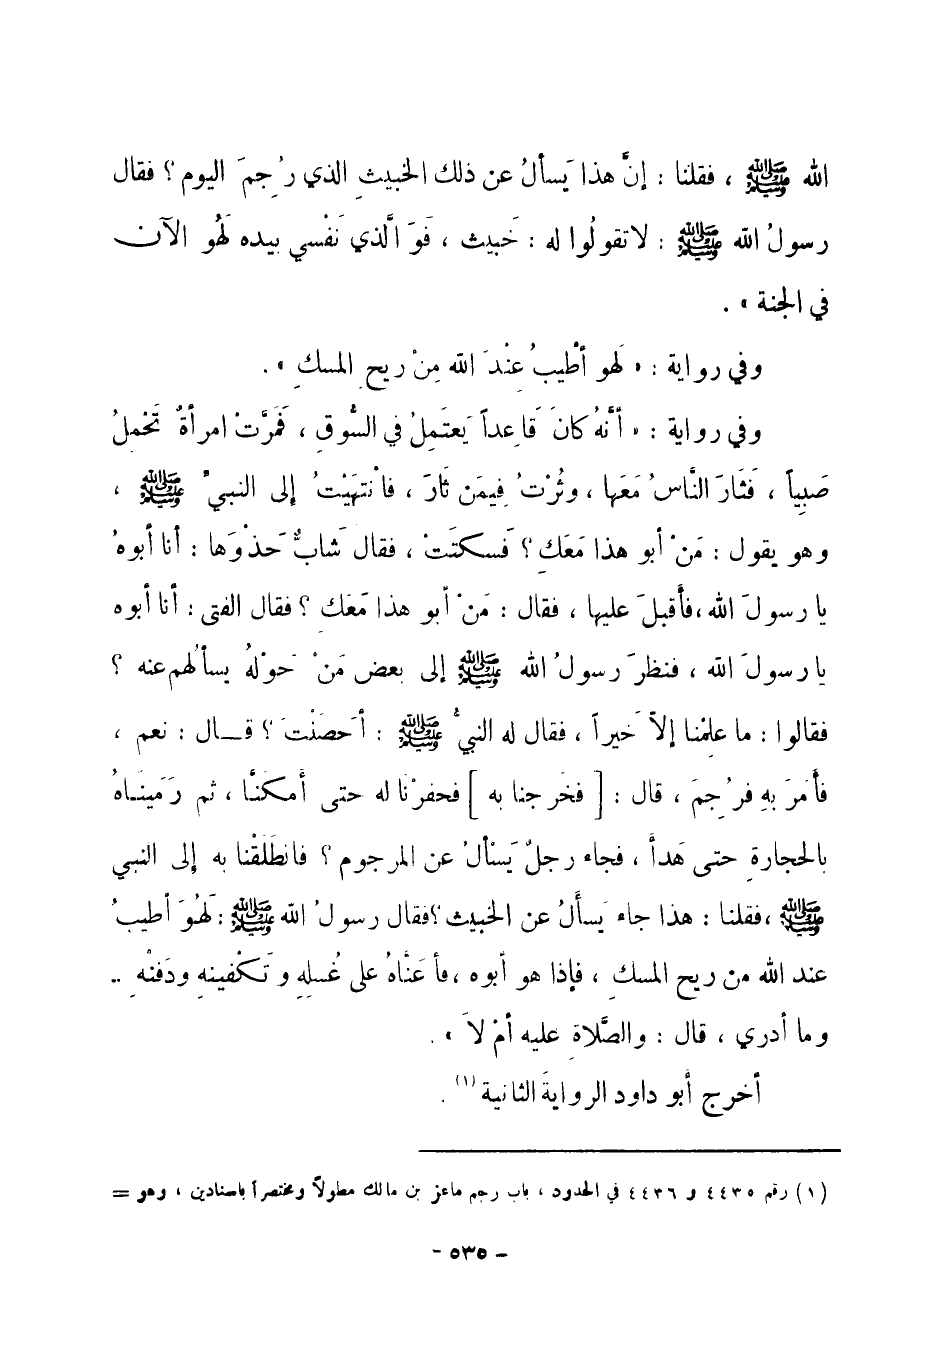 الله ﷺ ، فقلنا : إنَّ هذا يَسألُ عن ذلك الخبيثِ الذي رُجِمَ اليوم ؟ فقال
رسولُ الله ﷺ : لا تقولُوا له : خَبيث ، فَوَ الَّذي نَفْسي بيده لَهُو الآن
في الجنة » .
وفي رواية : « لَهو أطْيبُ عِنْدَ الله مِنْ ريحِ المسكِ » .
وفي رواية : « أنَّهُ كانَ قَاعِداً يَعتَمِلُ في السُّوقِ ، فَمَرَّتْ امرأةٌ تَحْمِلُ
صَبِياً ، فَثَارَ النَّاسُ مَعَها ، وثُرْتُ فِيمَن ثَارَ ، فانْتهَيْتُ إلى النبيِّ ﷺ ،
وهو يقول : مَنْ أبو هذا مَعَكِ ؟ فَسكتَتْ ، فقال شَابٌّ حَذْوَها : أنا أبوهُ
يا رسولَ الله ،فأَقبلَ عليها ، فقال : مَنْ أبو هذا مَعَكِ ؟ فقال الفتى : أنا أبوه
يا رسولَ الله ، فنظرَ رسولُ الله ﷺ إلى بعض مَنْ حَوْلهُ يسألهُم عنه ؟
فقالوا : ما علِمْنا إلاَّ خَيراً ، فقال له النبيُّ ﷺ : أَحصَنْتَ ؟ قـال : نعم ،
فأَمَرَ بهِ فرُجِمَ ، قال : [ فخَرجنا به ] فحفرْنا له حتى أمكنَّا ، ثم رَمَينَاهُ
بالحجارةِ حتى هَدأَ ، فجاء رجلٌ يَسْألُ عن المرجوم ؟ فانطَلَقْنا به إلى النبي
ﷺ ،فقلنا : هذا جاء يَسأَلُ عن الخبيث ؟فقال رسولُ الله ﷺ : لَهُوَ أطيبُ
عند الله من ريح المسكِ ، فإذا هو أبوه ،فأعَنَّاهُ على غُسلِهِ وتَكْفينهِ ودَفنْهِ ..
وما أدري ، قال : والصَّلاةِ عليه أمْ لاَ » .
أخرج أبو داود الروايةَ الثانية (١) .
(١) رقم ٤٤٣٥ و ٤٤٣٦ في الحدود ، باب رجم ماعز بن مالك مطولاً ومختصراً باسنادين ، وهو =
- ٥٣٥ -